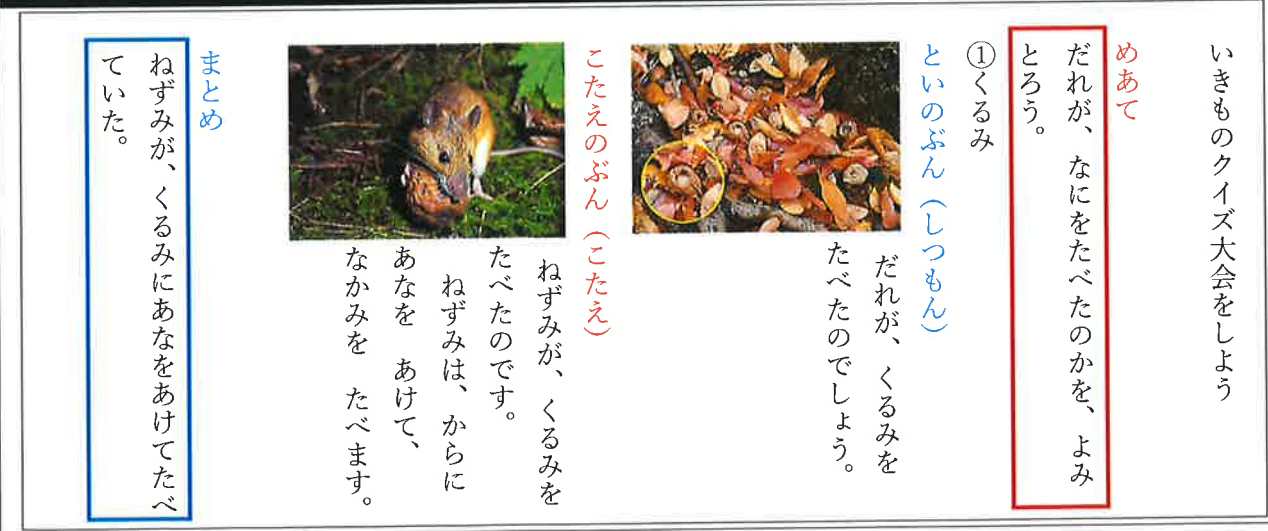 いきものクイズ大会をしよう
めあて
だれが、なにをたべたのかを、よみ
とろう。
①くるみ
といのぶん（しつもん）
だれが、くるみを
たべたのでしょう。
こたえのぶん（こたえ）
ねずみが、くるみを
たべたのです。
ねずみは、からに
あなを　あけて、
なかみを　たべます。
まとめ
ねずみが、くるみにあなをあけてたべ
ていた。